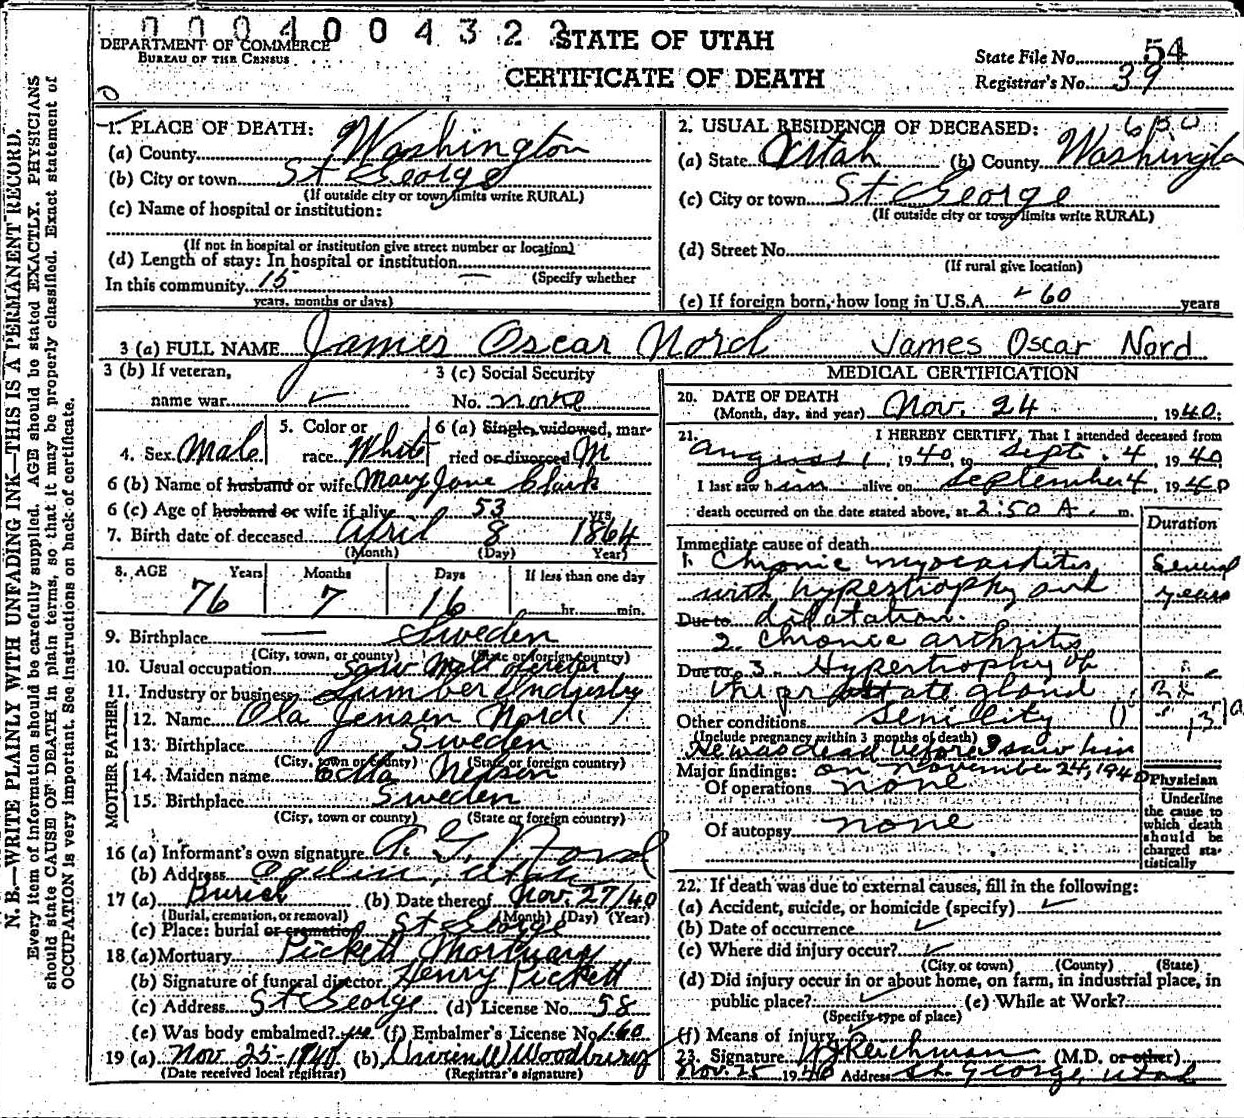 0004004322
DEPARTMENT OF COMMERCE
BUREAU OF THE CENSUS
STATE OF UTAH
CERTIFICATE OF DEATH
State File No. 54
Registrar's No. 39
N. B.—WRITE PLAINLY WITH UNFADING INK—THIS IS A PERMANENT RECORD.
Every item of information should be carefully supplied. AGE should be stated EXACTLY. PHYSICIANS
should state CAUSE OF DEATH in plain terms, so that it may be properly classified. Exact statement of
OCCUPATION is very important. See instructions on back of certificate.
1. PLACE OF DEATH:
(a) County Washington
(b) City or town St George
(If outside city or town limits write RURAL)
(c) Name of hospital or institution:
(If not in hospital or institution give street number or location)
(d) Length of stay: In hospital or institution
(Specify whether
In this community 15
years, months or days)
2. USUAL RESIDENCE OF DECEASED:
(a) State Utah (b) County Washington
(c) City or town St George
(If outside city or town limits write RURAL)
(d) Street No.
(If rural give location)
(e) If foreign born, how long in U.S.A. 60 years
3 (a) FULL NAME James Oscar Nord James Oscar Nord
3 (b) If veteran,
name war
3 (c) Social Security
No. none
4. Sex Male
5. Color or
race White
6 (a) Single, widowed, mar-
ried or divorced M
6 (b) Name of husband or wife Mary Jane Clark
6 (c) Age of husband or wife if alive 53 yrs.
7. Birth date of deceased April 8 1864
(Month) (Day) (Year)
8. AGE Years Months Days If less than one day
76 7 16 hr. min.
9. Birthplace Sweden
(City, town, or county) (State or foreign country)
10. Usual occupation Saw Mill
11. Industry or business Lumber Industry
FATHER
12. Name Ola Jensen Nord
13. Birthplace Sweden
(City, town or county) (State or foreign country)
MOTHER
14. Maiden name Nelson
15. Birthplace Sweden
(City, town or county) (State or foreign country)
16 (a) Informant's own signature A. G. Nord
(b) Address Ogden, Utah
17 (a) Burial (b) Date thereof Nov. 27/40
(Burial, cremation, or removal) (Month) (Day) (Year)
(c) Place: burial or cremation St George
18 (a) Mortuary Pickett Mortuary
(b) Signature of funeral director Henry Pickett
(c) Address St George (d) License No. 58
(e) Was body embalmed? (f) Embalmer's License No. 160
19 (a) Nov 25-1940 (b) Woodbury
(Date received local registrar) (Registrar's signature)
MEDICAL CERTIFICATION
20. DATE OF DEATH
(Month, day, and year) Nov. 24, 1940.
21. I HEREBY CERTIFY, That I attended deceased from
August 1, 1940, to Sept. 4, 1940
I last saw him alive on September 4, 1940
death occurred on the date stated above, at 2:50 A. m.
Duration
Immediate cause of death
1. Chronic myocarditis Several
with hypertrophy and years
Due to dilatation.
2. Chronic arthritis
Due to 3. Hypertrophy of
the prostate gland
Other conditions Senility
(Include pregnancy within 3 months of death)
He was dead before I saw him
Major findings: on November 24, 1940
Of operations none
Of autopsy none
Physician
Underline
the cause to
which death
should be
charged sta-
tistically
22. If death was due to external causes, fill in the following:
(a) Accident, suicide, or homicide (specify)
(b) Date of occurrence
(c) Where did injury occur?
(City or town) (County) (State)
(d) Did injury occur in or about home, on farm, in industrial place, in
public place? (e) While at Work?
(Specify type of place)
(f) Means of injury
23. Signature Reichman (M.D. or other)
Nov. 25 1940 Address St. George, Utah